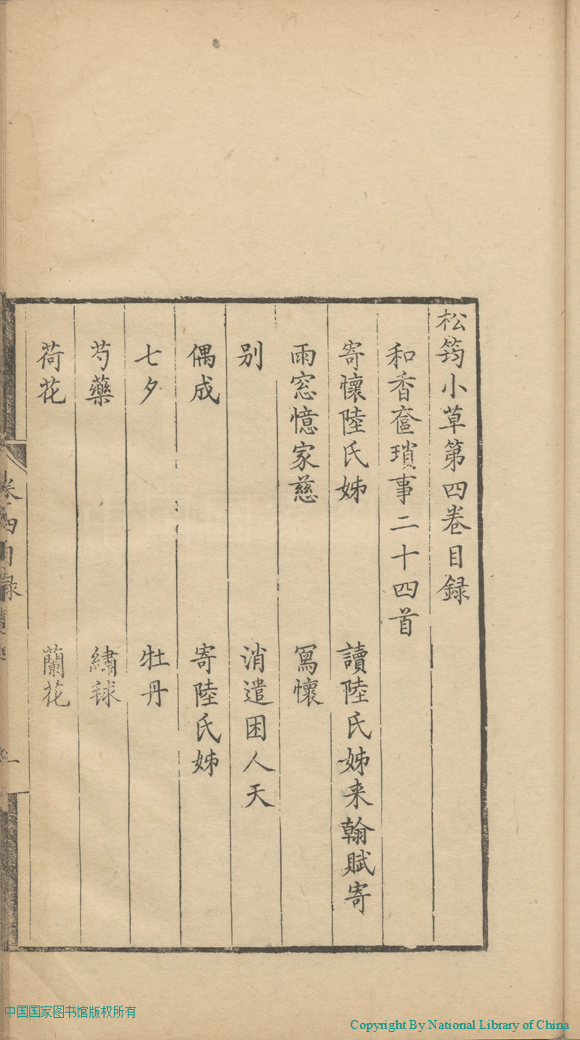 松筠小草第四卷目録
和香奩瑣事二十四首
寄懷陸氏姊
讀陸氏姊来翰賦寄
雨窓憶家慈
寫懷
别
消遣困人天
偶成
寄陸氏姊
七夕
牡丹
芍藥
繡毬
荷花
蘭花
卷四目録
一
中国国家图书馆版权所有
Copyright By National Library of China